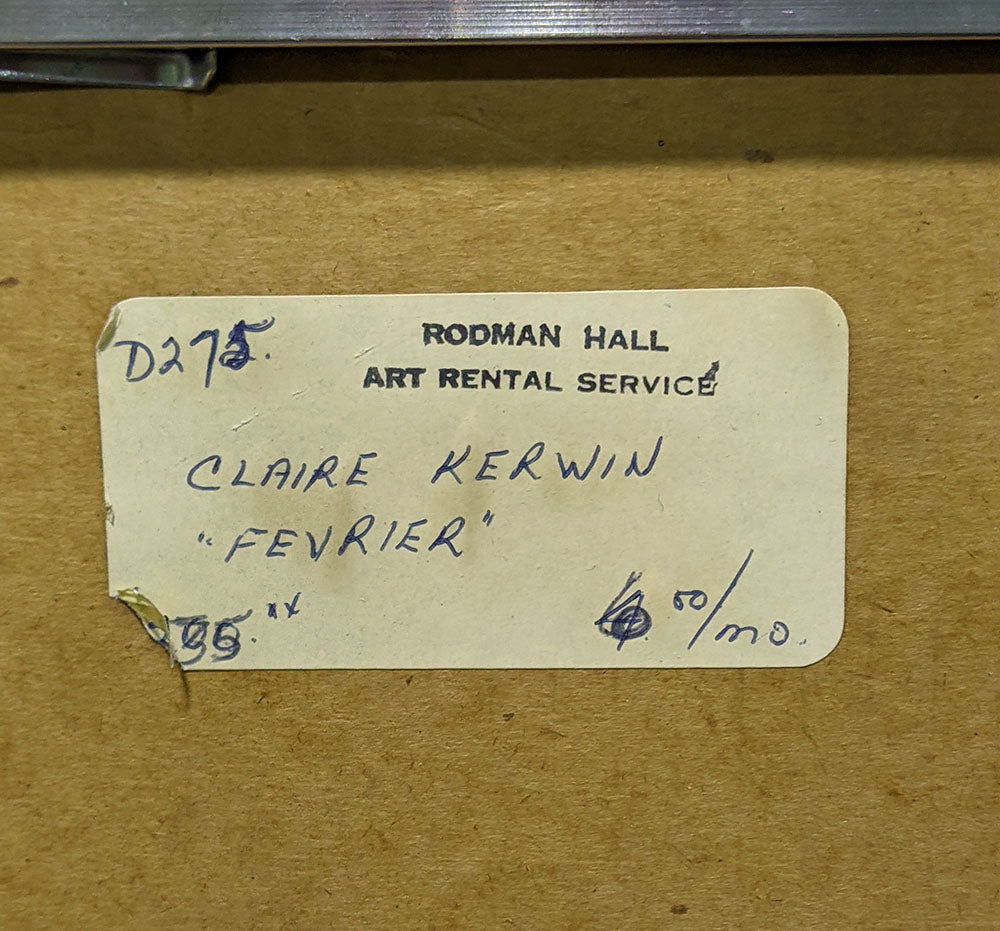 D275.
RODMAN HALL
ART RENTAL SERVICE
CLAIRE KERWIN
"FEVRIER"
00/mo.